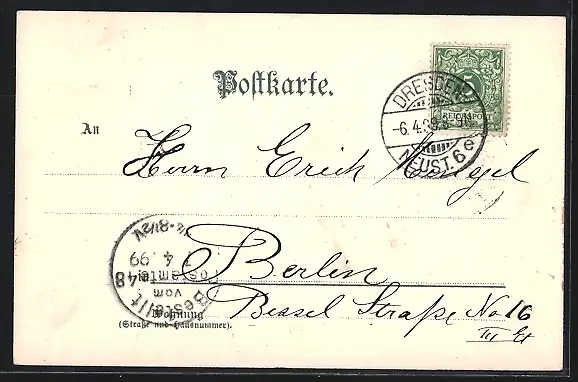 Postkarte.
5
REICHSPO
DRESDEN
-6.4.99.8-9
NEUST. 6e
An
Herrn Erich
in Berlin
Bestellt
vom
Postamte 48
4.99
8½V
Wohnung
(Straße und Hausnummer).
Bessel Straße No 16
III Et